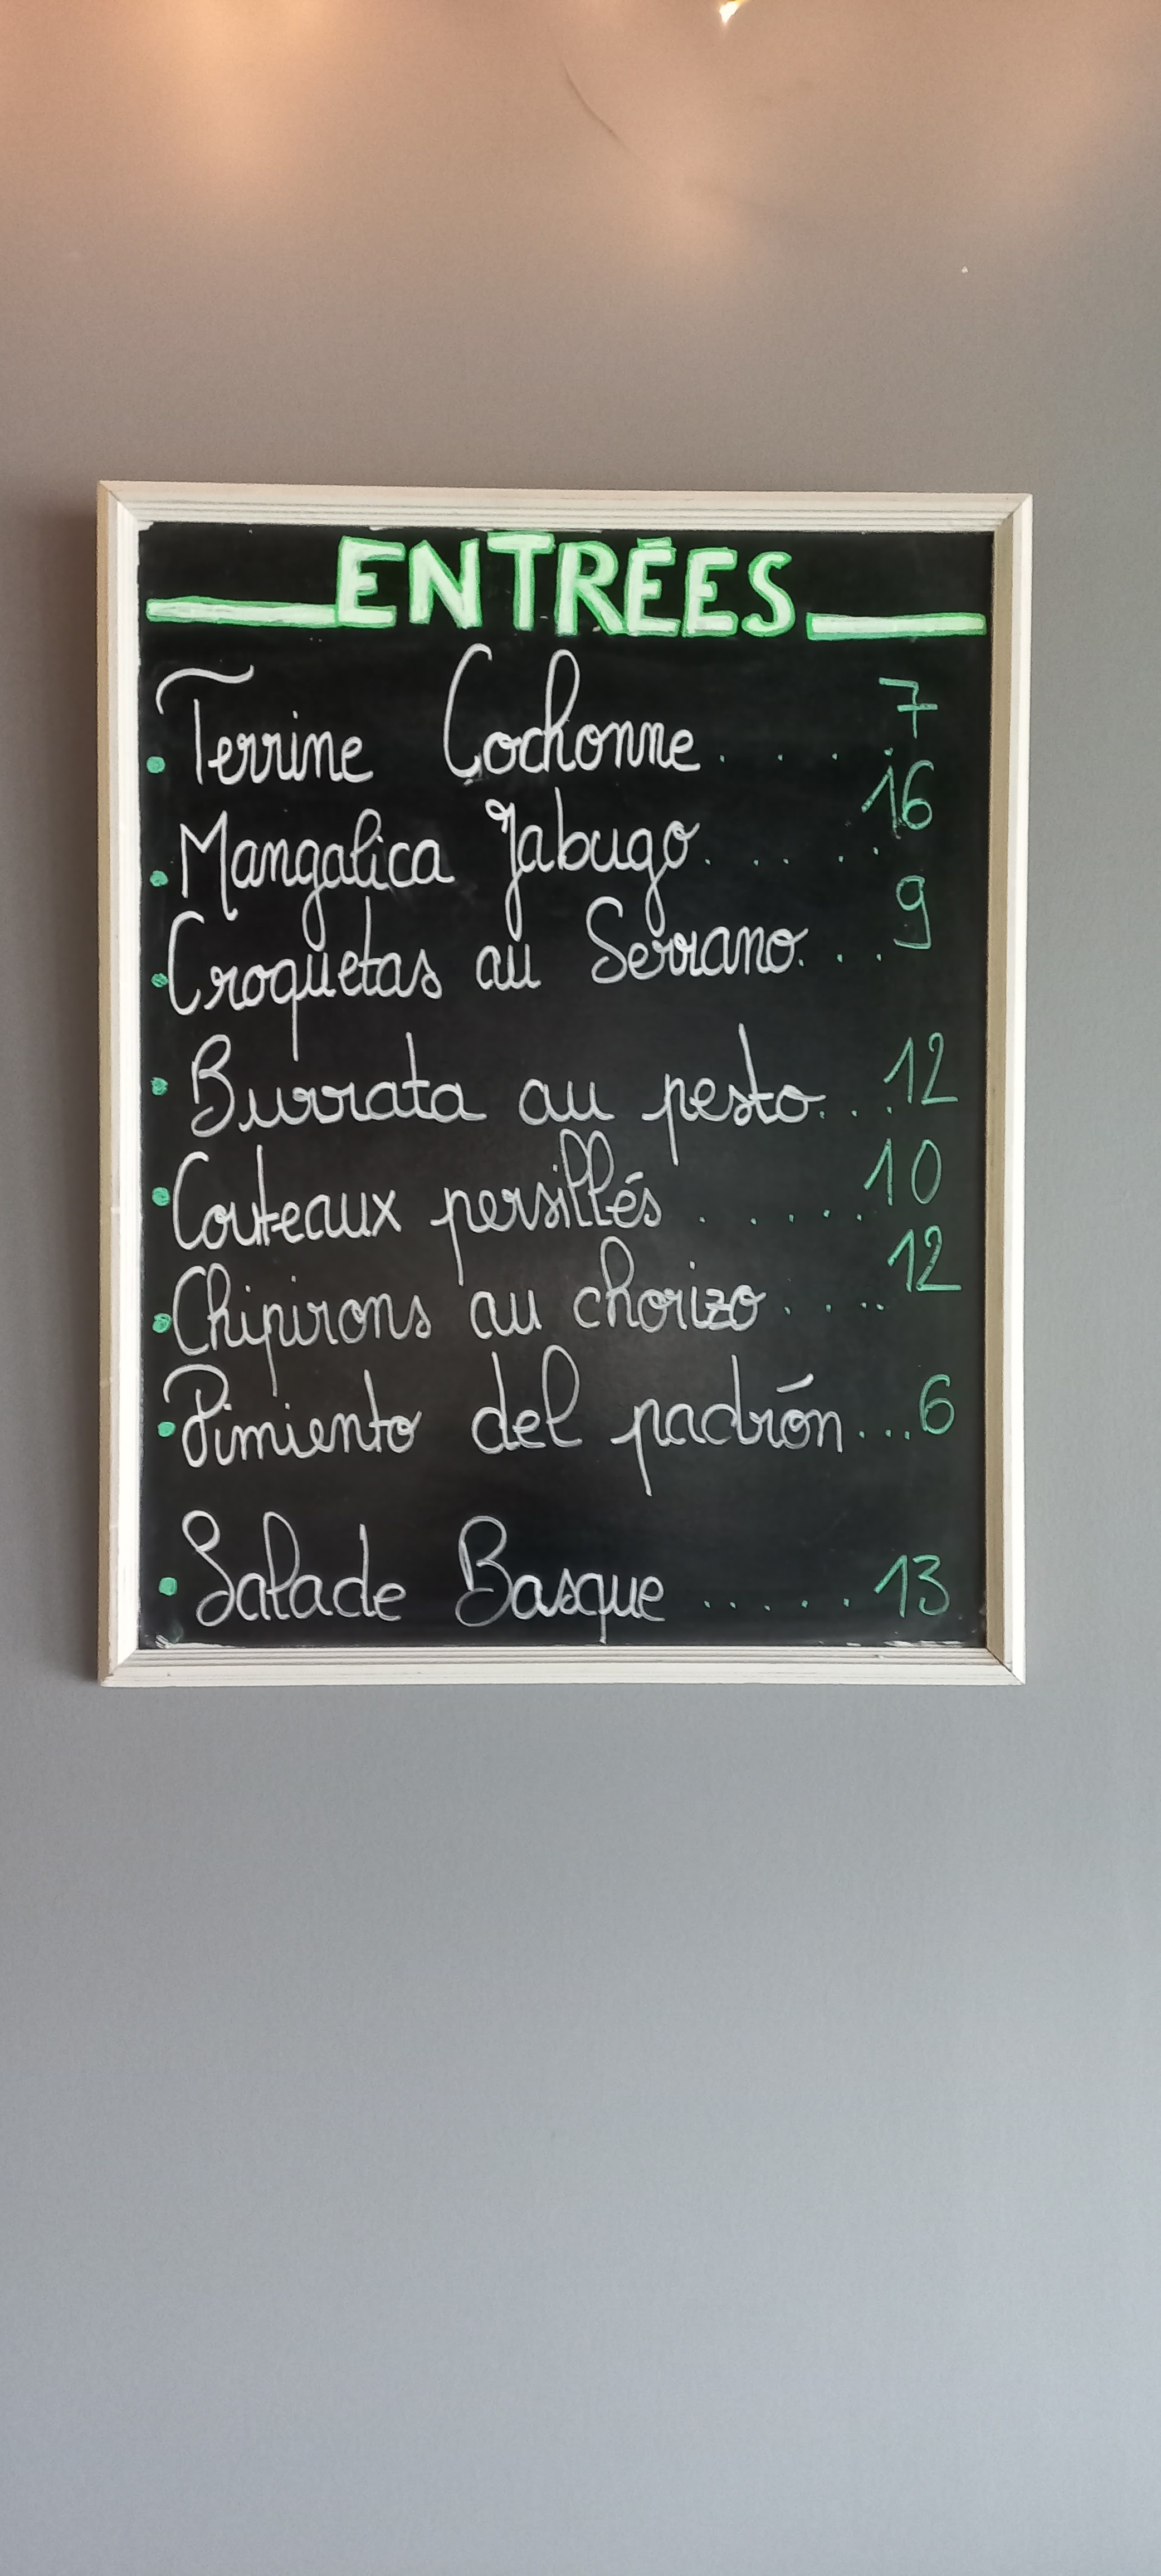 ENTRÉES
• Terrine Cochonne . . . . 7
• Mangalica Jabugo . . . . . 16
• Croquetas au Serrano . . . . 9
• Burrata au pesto . . . . 12
• Couteaux persillés . . . . . . 10
• Chipirons au chorizo . . . . . 12
• Pimiento del padrón . . . 6
• Salade Basque . . . . . . 13